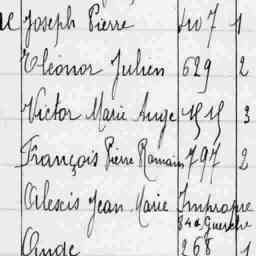 Joseph Pierre 407 1
Eléonor Julien 629 2
Victor Marie Ange 3
François Pierre Romain 797 2
Alexis Jean Marie Impropre
Ange 268 1